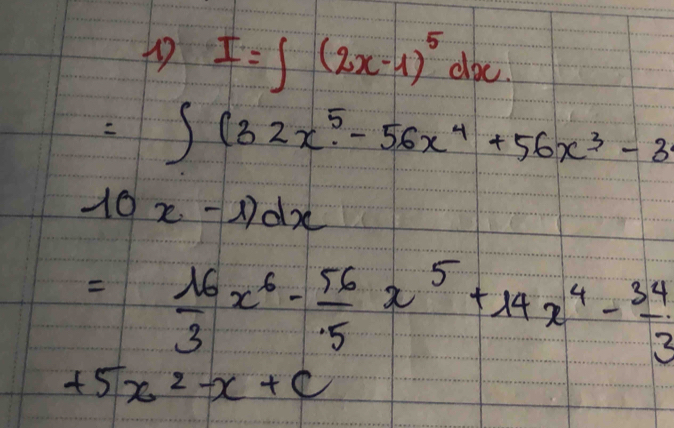 1) I = ∫ (2x-1)^5 dx.
= ∫ (32x^5 - 56x^4 + 56x^3 - 3
10x - 1) dx
= 16/3 x^6 - 56/5 x^5 + 14x^4 - 34/3
+ 5x^2 - x + C